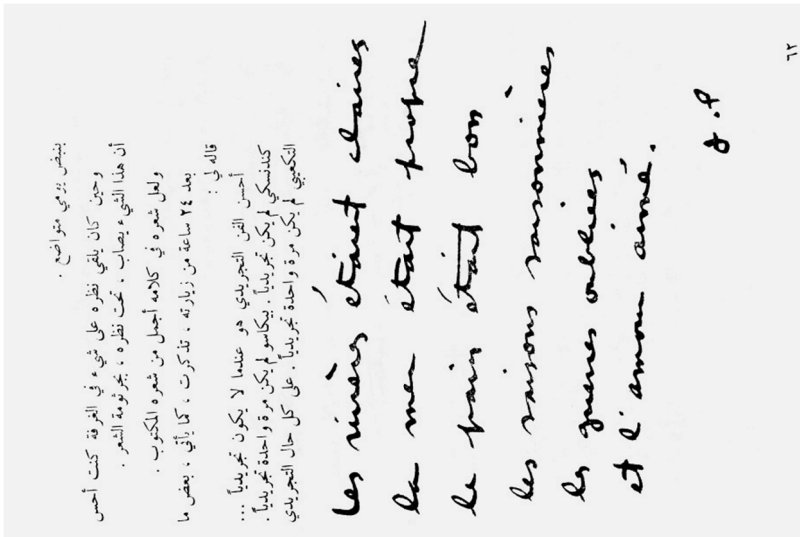 ينبض يومي متواضع .
وحين كان يلقي نظره على شيء في الغرفة كنت أحس
أن هذا الشيء يصاب ، تحت نظره ، بجرثومة الشعر .
ولعل شعره في كلامه أجمل من شعره المكتوب .
بعد ٢٤ ساعة من زيارته ، تذكرت ، كما يأتي ، بعض ما
قاله لي :
أحسن الفن التجريدي هو عندما لا يكون تجريدياً ...
كندنسكي لم يكن تجريدياً . بيكاسو لم يكن مرة واحدة تجريدياً .
التكعيبي لم يكن مرة واحدة تجريدياً . على كل حال التجريدي
Les rivières étaient claires
la mer était propre
le pain était bon
les saisons saisonnières
les guerres oubliées
et l'amour aimé.
J.P
٦٢